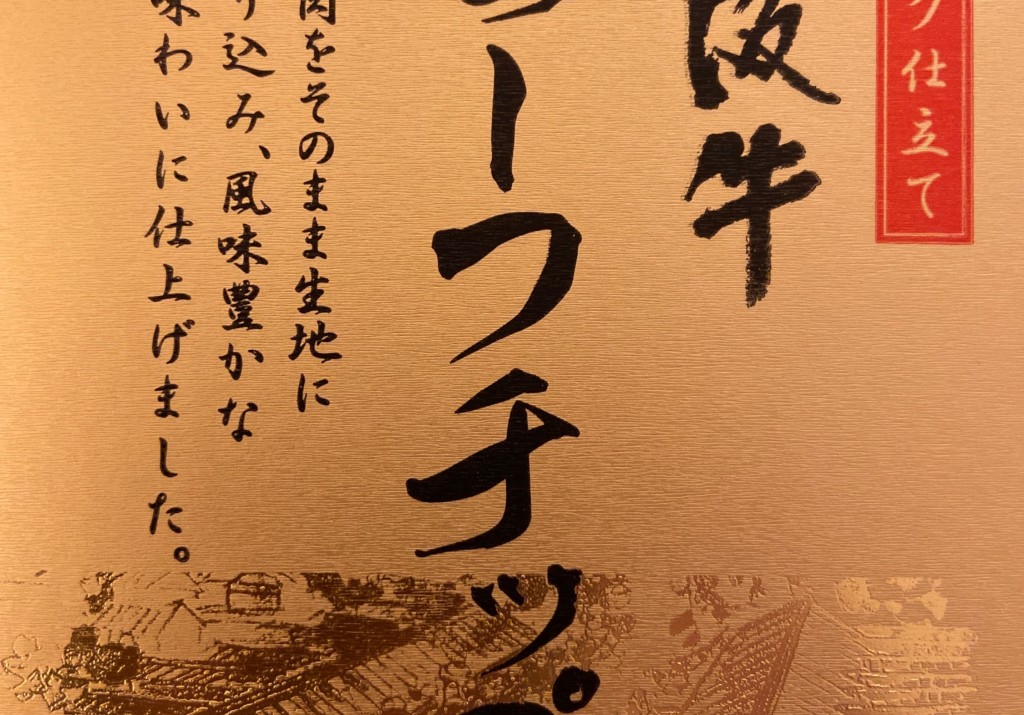 仕立て
阪牛
ーフチッ
肉をそのまま生地に
り込み、風味豊かな
味わいに仕上げました。